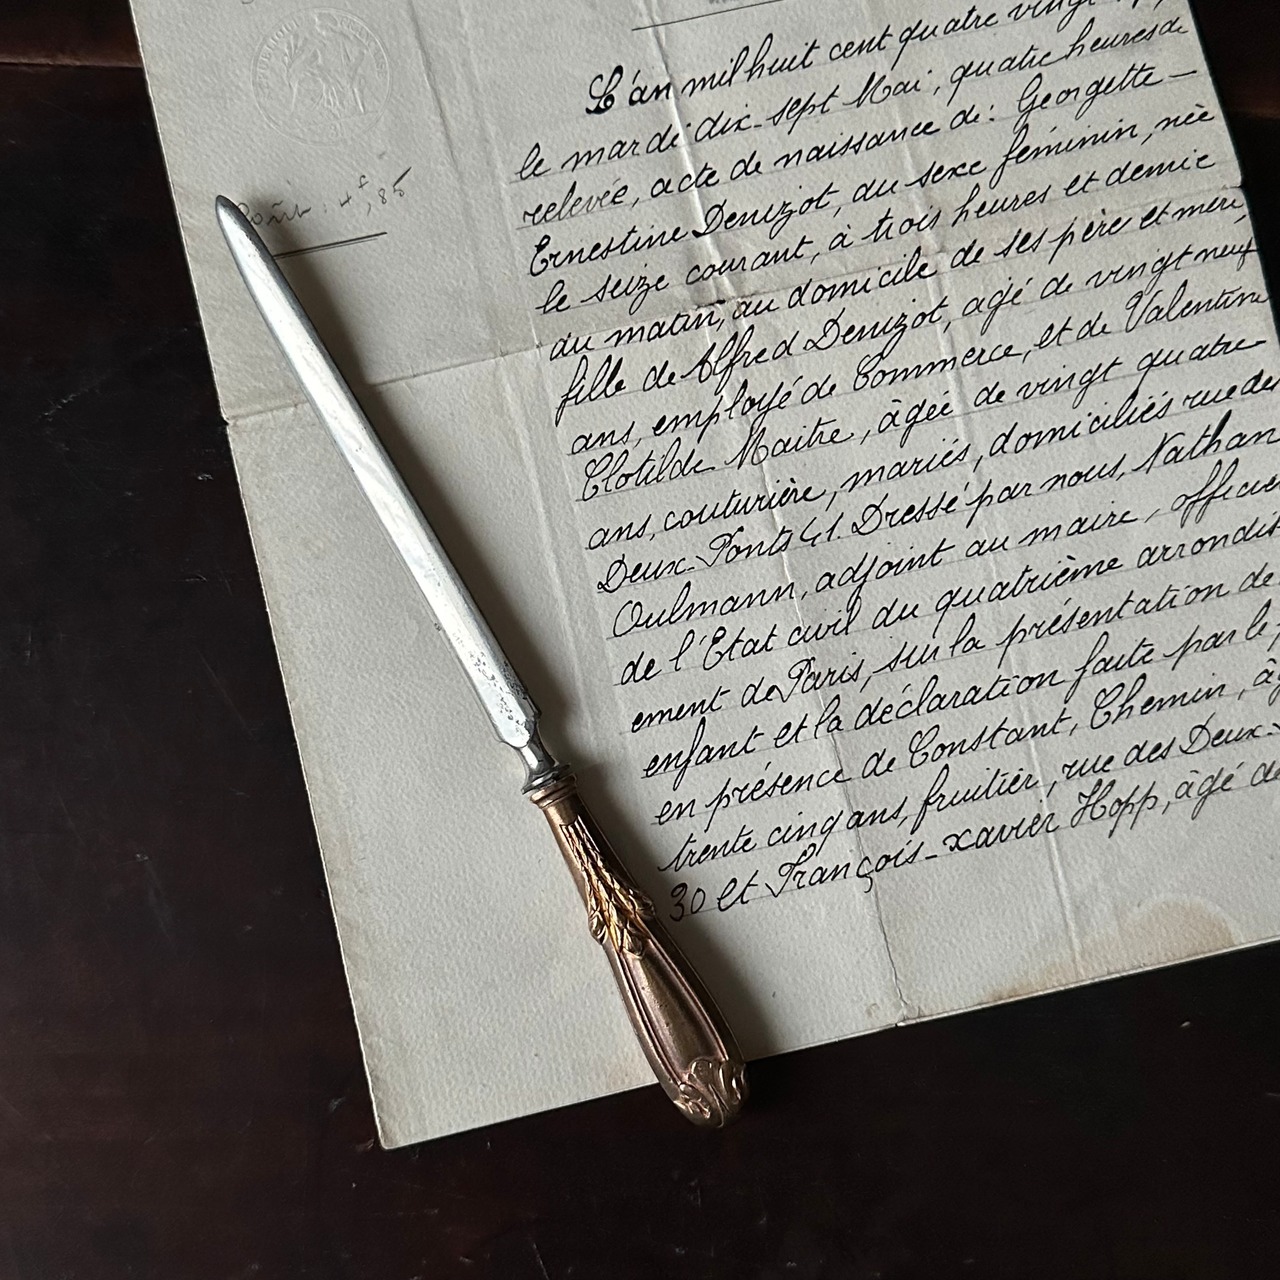 L'an mil huit cent quatre vingt
le mardi dix-sept Mai, quatre heures de
relevée, acte de naissance de: Georgette —
Ernestine Denizot, du sexe féminin, née
le seize courant, à trois heures et demie
du matin, au domicile de ses père et mère,
fille de Alfred Denizot, agé de vingt neuf
ans, employé de Commerce, et de Valentine
Clotilde Maitre, âgée de vingt quatre
ans, couturière, mariés, domiciliés rue des
Deux-Ponts 41. Dressé par nous, Nathan
Oulmann, adjoint au maire, officier
de l'Etat civil du quatrième arrondis
ement de Paris, sur la présentation de
enfant et la déclaration faite par le
en présence de Constant, Chemin, âg
trente cinq ans, fruitier, rue des Deux-
30 et François-xavier Hopp, âgé de